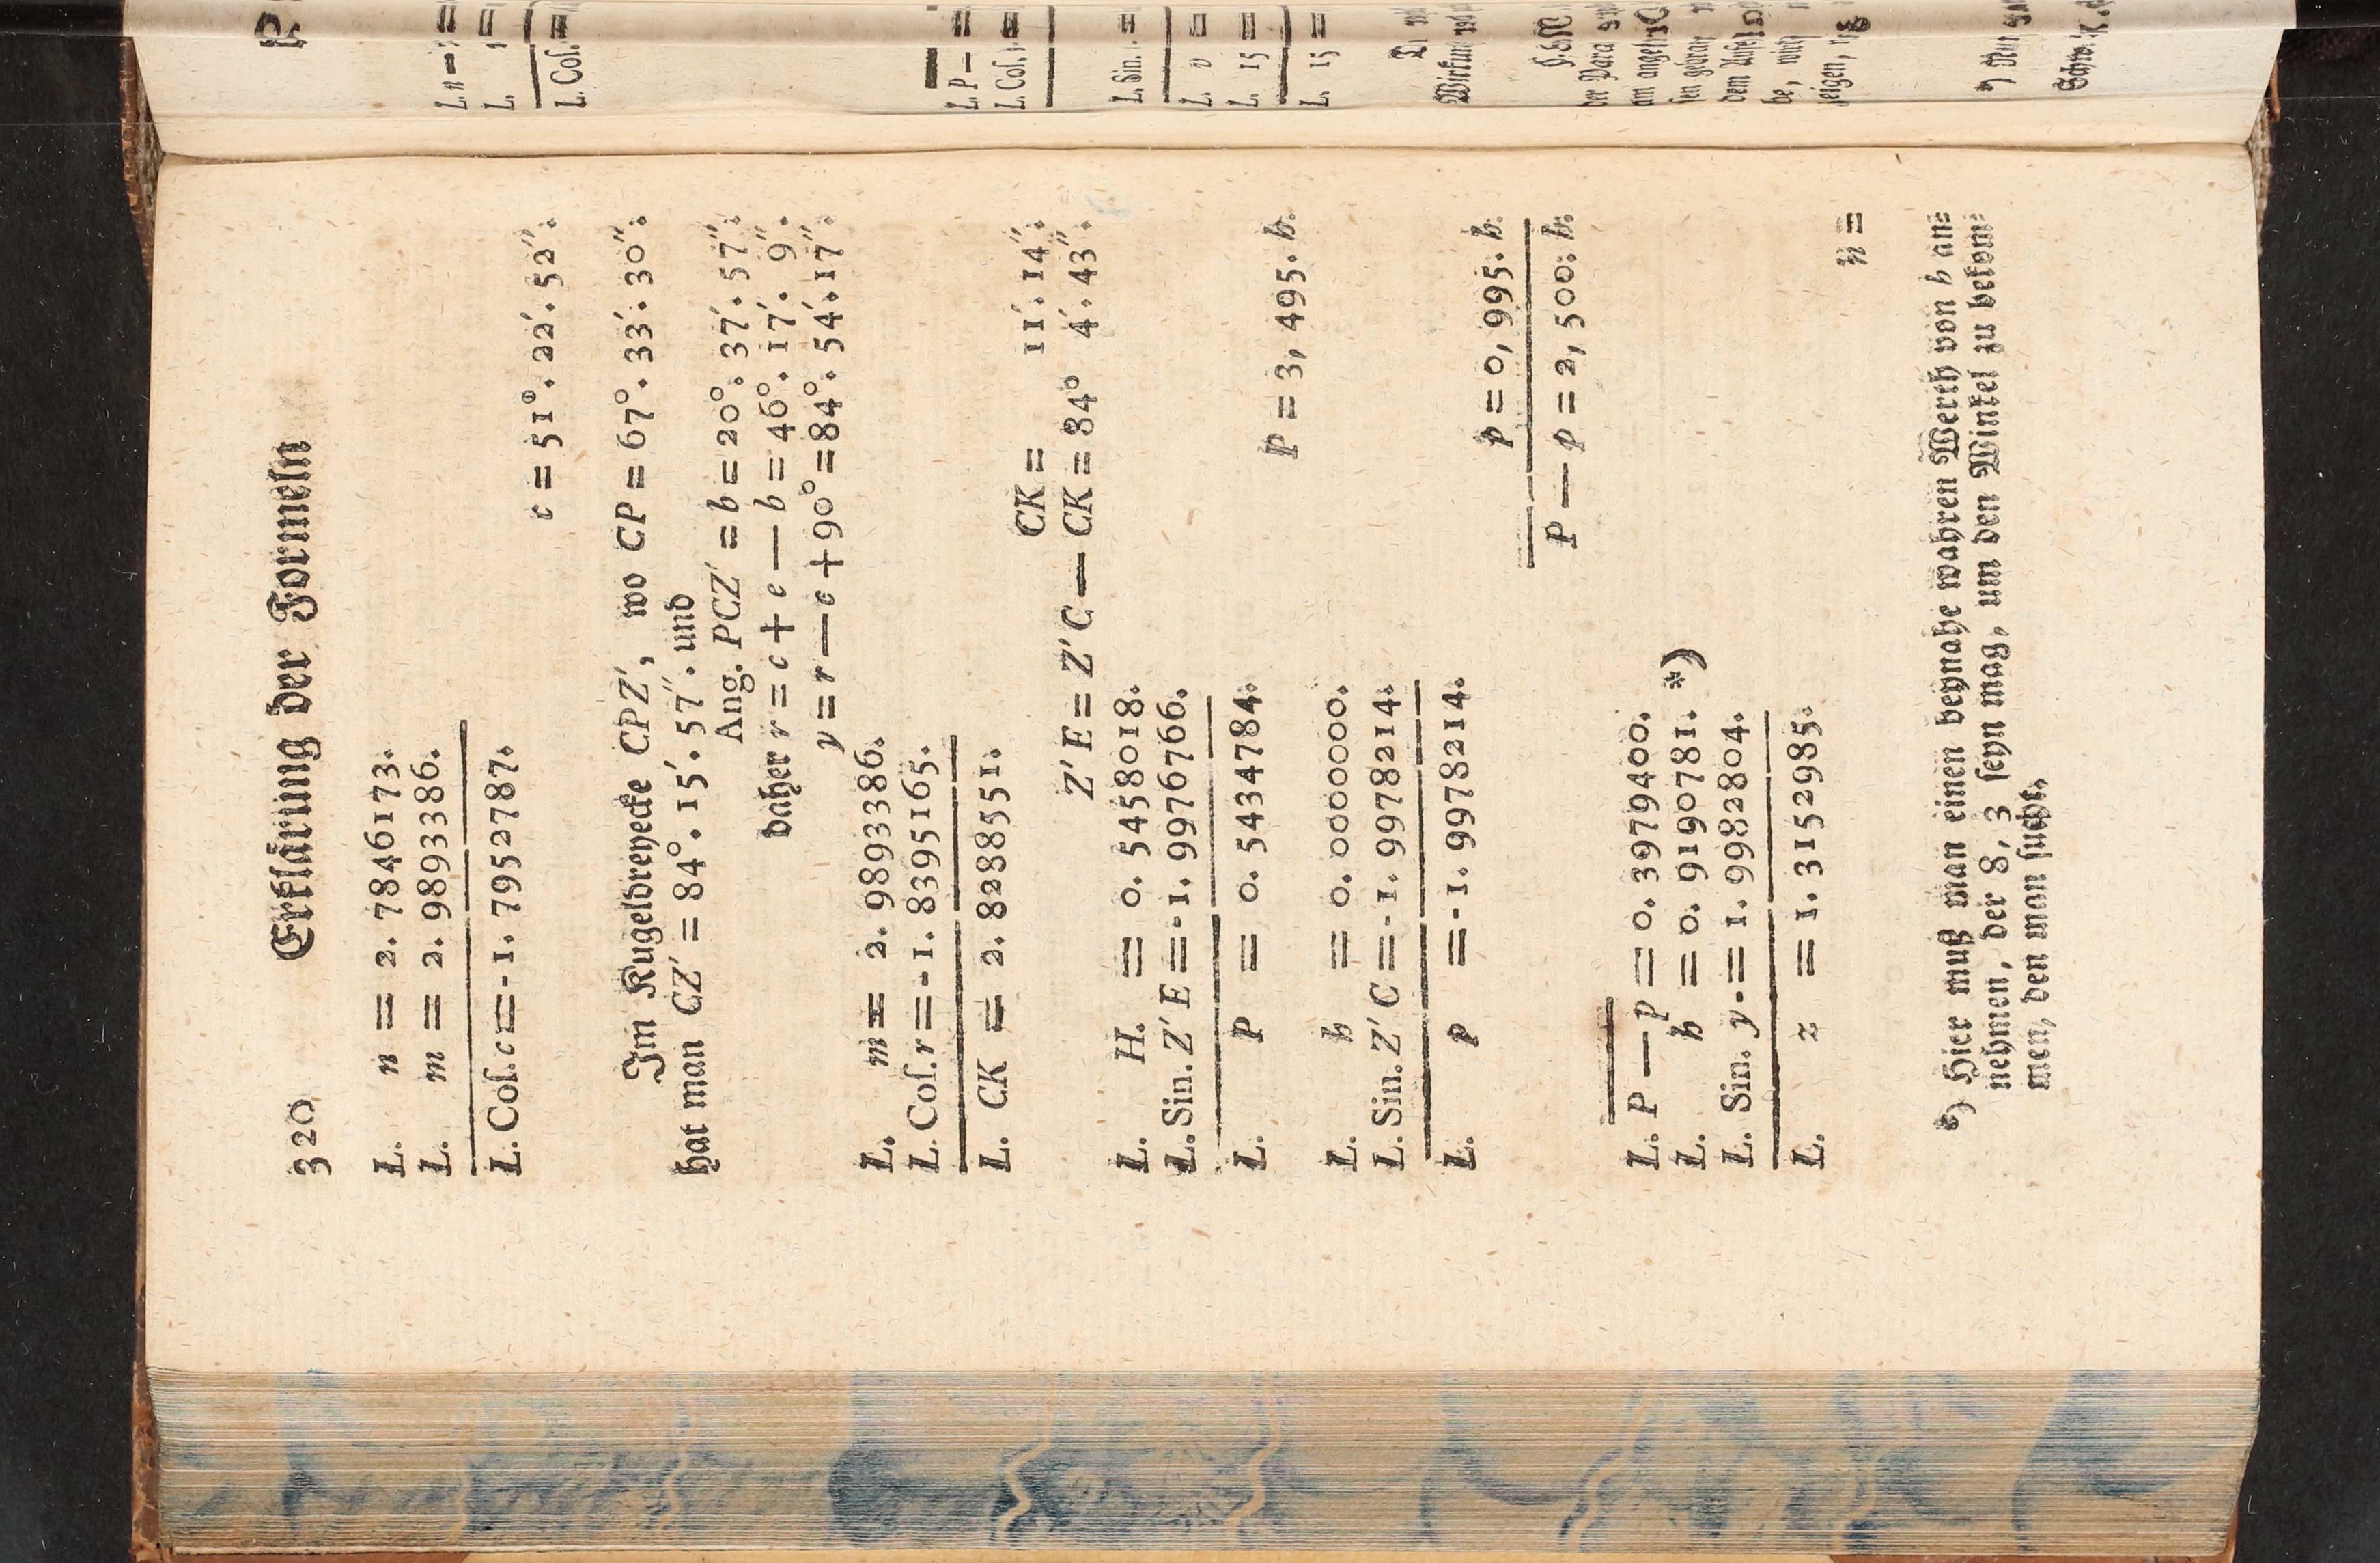 320 Erklärung der Formeln
L. n = 2. 7846173.
L. m = 2. 9893386.
L. Coſ. c = - 1. 7952787.
c = 51°. 22′. 52″.
Im Kugeldreyecke CPZ′, wo CP = 67°. 33′. 30″.
hat man CZ′ = 84°. 15′. 57″. und
Ang. PCZ′ = b = 20°. 37′. 57″.
daher r = c + e — b = 46°. 17′. 9″.
y = r — c + 90° = 84°. 54′. 17″.
L. m = 2. 9893386.
L. Coſ. r = - 1. 8395165.
L. CK = 2. 8288551.
CK = 11′. 14″.
Z′E = Z′C — CK = 84° 4′. 43″.
L. H. = 0. 5458018.
L. Sin. Z′E = - 1. 9976766.
L. P = 0. 5434784.
P = 3, 495. h.
L. h = 0. 0000000.
L. Sin. Z′C = - 1. 9978214.
L. p = - 1. 9978214.
p = 0, 995. h.
P — p = 2, 500. h.
L. P — p = 0. 3979400.
L. h = 0. 9190781. *)
L. Sin. y - = 1. 9982804.
L. z = 1. 3152985.
n =
*) Hier muß man einen beynahe wahren Werth von h an=
nehmen, der 8, 3 ſeyn mag, um den Winkel zu bekom=
men, den man ſucht.
L. n —
L.
L. Coſ.
L. P —
L. Coſ.
L. Sin. =
L. v =
L. 15 =
L. 15 =
der Para
am
dem
be,
zeigen,